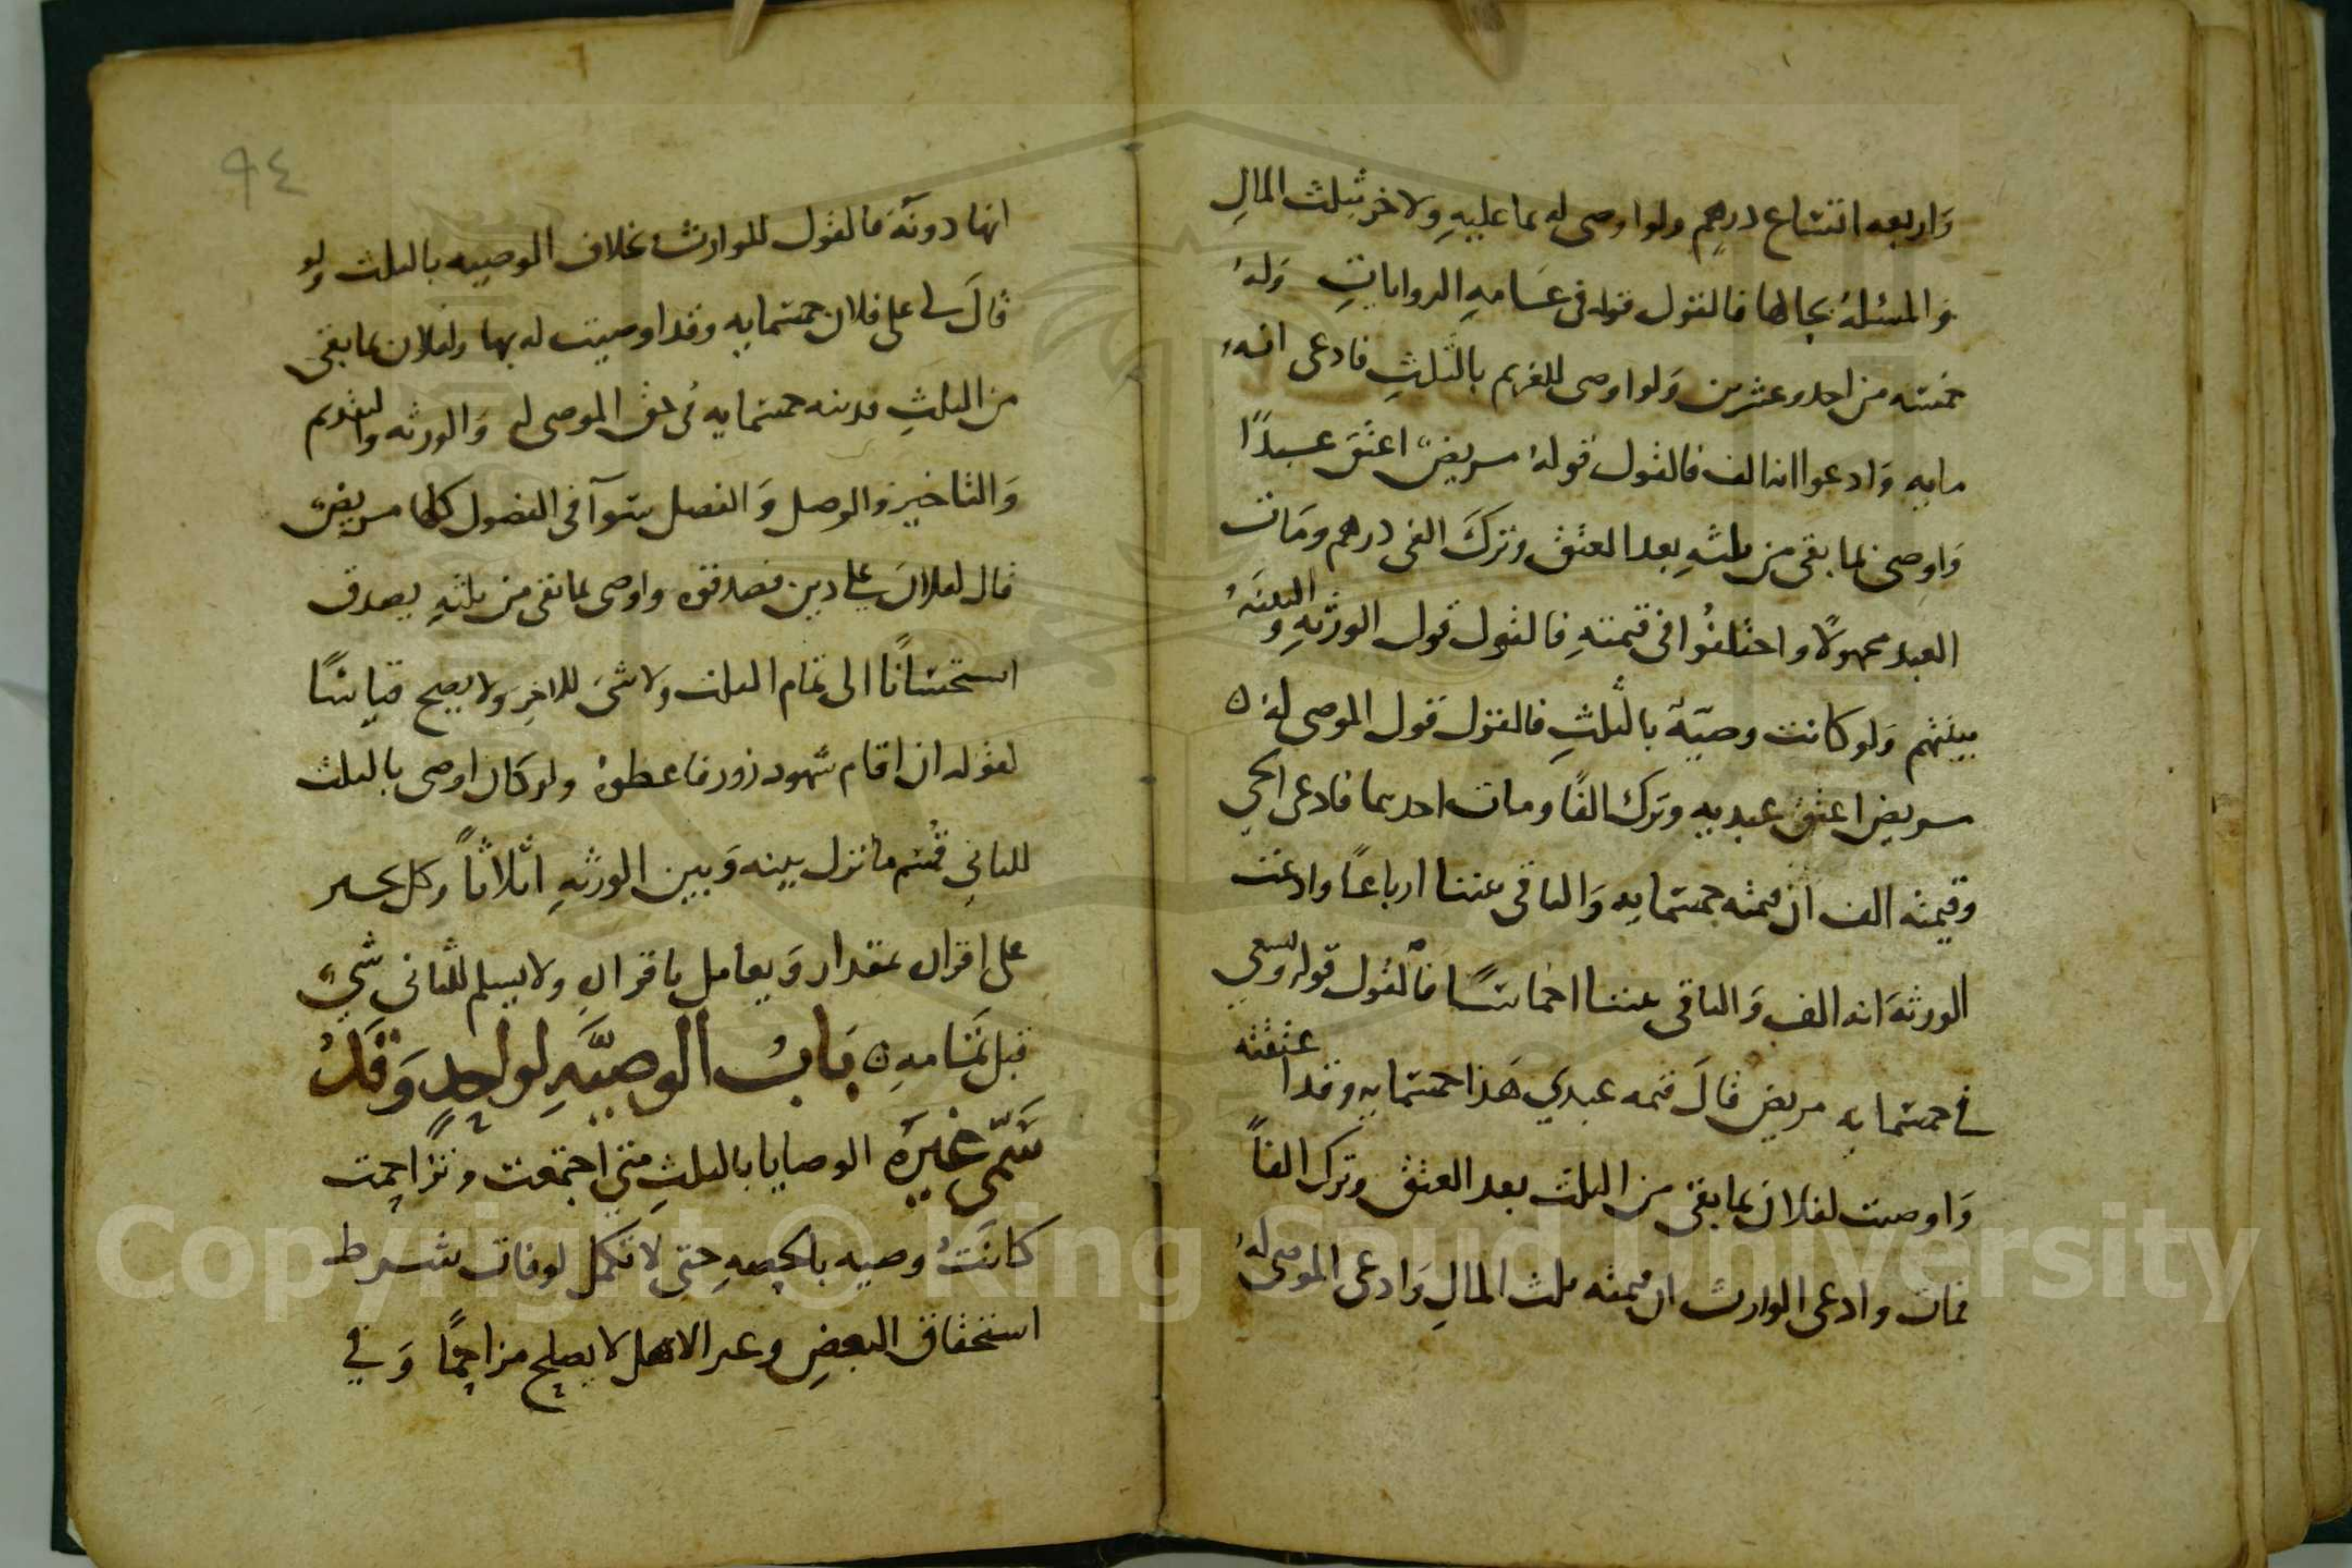 وَاربعه اتساع درهم ولو اوصى له بما عليهِ ولاخر بثلث المالِ
وَالمسئلهُ بحالها فالقول قوله فى عَامهِ الرواياتِ وَلهُ
خمسه من احد وعشرين وَلو اوصى للغريم بالثلثِ فادعى انهُ
مايه وَادعوا انه الف فالقول قولهُ مريضٌ اعتقَ عبدًا
وَاوصى بما بقى من ثلثهِ بعد العتق وتركَ الفى درهم ومَات
العبد مجهولًا واختلفُوا فى قيمتهِ فالقول قول الورثهِ والبينهُ
بينتهم وَلو كانت وصيّهً بالثلثِ فالقول قول الموصى له ۝
مريض اعتق عبديهِ وترك الفًا ومات احدهما فادعى الحي
وقيمته الف ان قيمته خمسمايه وَالباقى بيننا ارباعًا وادعت
الورثهَ انه الف وَالباقى بيننا اخماسًا فالقول قوله ويسعي
في خمسمايه مريض قالَ قيمه عبدي هَذا خمسمايه وقد اعتقته
وَاوصيت لفلان بما بقى من الثلث بعد العتق وترك الفاً
فمات وادعى الوارث ان قيمته ثلث المالِ وَادعى الموصى لهُ
٩٤
انها دونهَ فالقول للوارث بخلاف الوصيه بالثلث ولو
قالَ لى على فلان خمسمايه وقد اوصيت له بها ولفلان بما بقى
من الثلثِ فدينه خمسمايه فى حق الموصى له وَالورثه والتقديم
وَالتاخير والوصل وَالفصل سَوآ فى الفصول كلها مريض
قال لفلان عَلي دين فصدقوه واوصى بما بقى من ثلثهِ يصدق
استحسَانًا الى تمام الثلث ولا شىَ للاخرِ ولا يصح قياسًا
لقوله ان اقام شهود زور فاعطوهُ ولو كان اوصى بالثلث
للثاني قُسم ما نزل بينه وَبين الورثهِ اثلاثاً وكل يجبر
على اقرار بمقدار وَيعامل باقرارِ ولا يسلم للثانى شيء
قبل تمَامهِ ۝ بَابُ الوصيَّهِ لواحدٍ وَقَدْ
سَمّى غيرَه الوصايا بالثلثِ متي اجتمعت وتزاحمت
كانَتْ وصيه بالحصهِ حتى لا تكمل لوفات شرط
استحقاق البعضِ وغير الاهل لا يصلح مزاحمًا وَفي
Copyright © King Saud University